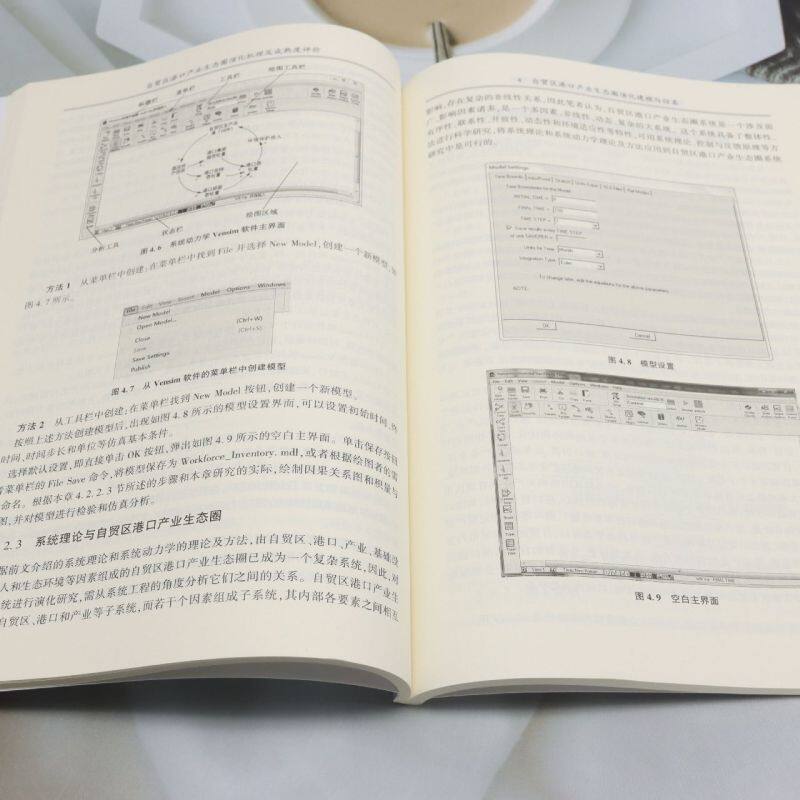 自贸区港口产业生态圈演化机理及成熟度评价
标题栏 菜单栏 工具栏 绘图工具栏
分析工具 状态栏 绘图区域
图 4.6 系统动力学 Vensim 软件主界面
方法 1 从菜单栏中创建:在菜单栏中找到 File 并选择 New Model,创建一个新模型,如
图 4.7 所示。
File Edit View Layout Model Options Windows
New Model
Open Model... (Ctrl+W)
Close (Ctrl+S)
Save
Save Settings
Publish
图 4.7 从 Vensim 软件的菜单栏中创建模型
方法 2 从工具栏中创建:在菜单栏找到 New Model 按钮,创建一个新模型。
按照上述方法创建模型后,出现如图 4.8 所示的模型设置界面,可以设置初始时间、终
时间、时间步长和单位等仿真基本条件。
选择默认设置,即直接单击 OK 按钮,弹出如图 4.9 所示的空白主界面。单击保存按钮
菜单栏的 File Save 命令,将模型保存为 Workforce_Inventory. mdl,或者根据绘图者的需
命名。根据本章 4.2.2.3 节所述的步骤和本章研究的实际,绘制因果关系图和积量与
图,并对模型进行检验和仿真分析。
2.3 系统理论与自贸区港口产业生态圈
据前文介绍的系统理论和系统动力学的理论及方法,由自贸区、港口、产业、基础设
人和生态环境等因素组成的自贸区港口产业生态圈已成为一个复杂系统,因此,对
统进行演化研究,需从系统工程的角度分析它们之间的关系。自贸区港口产业生
自贸区、港口和产业等子系统,而若干个因素组成子系统,其内部各要素之间相互
4 自贸区港口产业生态圈演化建模与仿真
影响,存在复杂的非线性关系,因此笔者认为,自贸区港口产业生态圈系统是一个涉及面
广、影响因素诸多,是一个多因素、非线性、动态、复杂的大系统。这个系统具备了整体性、
有序性、联系性、开放性、动态性和环境适应性等特性,可用系统理论、控制与反馈原理等方
法进行科学研究,将系统理论和系统动力学理论及方法应用到自贸区港口产业生态圈系统
研究中是可行的。
Model Settings
Time Boundaries for the Model
INITIAL TIME =
FINAL TIME =
TIME STEP =
Save results every TIME STEP
or use SAVEPER =
Units for Time Month
Integration Type Euler
To change later, edit the equations for the above parameters.
NOTE:
OK Cancel
图 4.8 模型设置
图 4.9 空白主界面